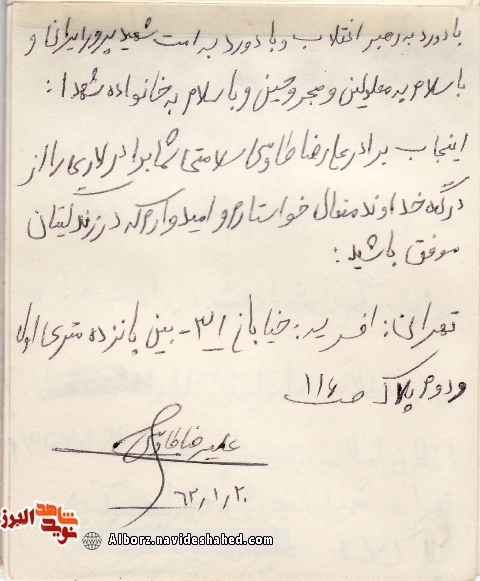 با درود به رهبر انقلاب و با درود به امت شهید پرور ایران و
با سلام به معلولین و مجروحین و با سلام به خانواده شهدا :
اینجانب برادر علیرضا طاوسی سلامتی شما برادر را از
درگاه خداوند متعال خواستارم و امیدوارم که در زندگیتان
موفق باشید :
تهران : افسریه : خیابان ۳۱ - بین پانزده متری اول
و دوم پلاک ۱۱۶
علیرضا طاوسی
۶۲/۱/۲۰
نوید شاهد البرز
Alborz.navideshahed.com